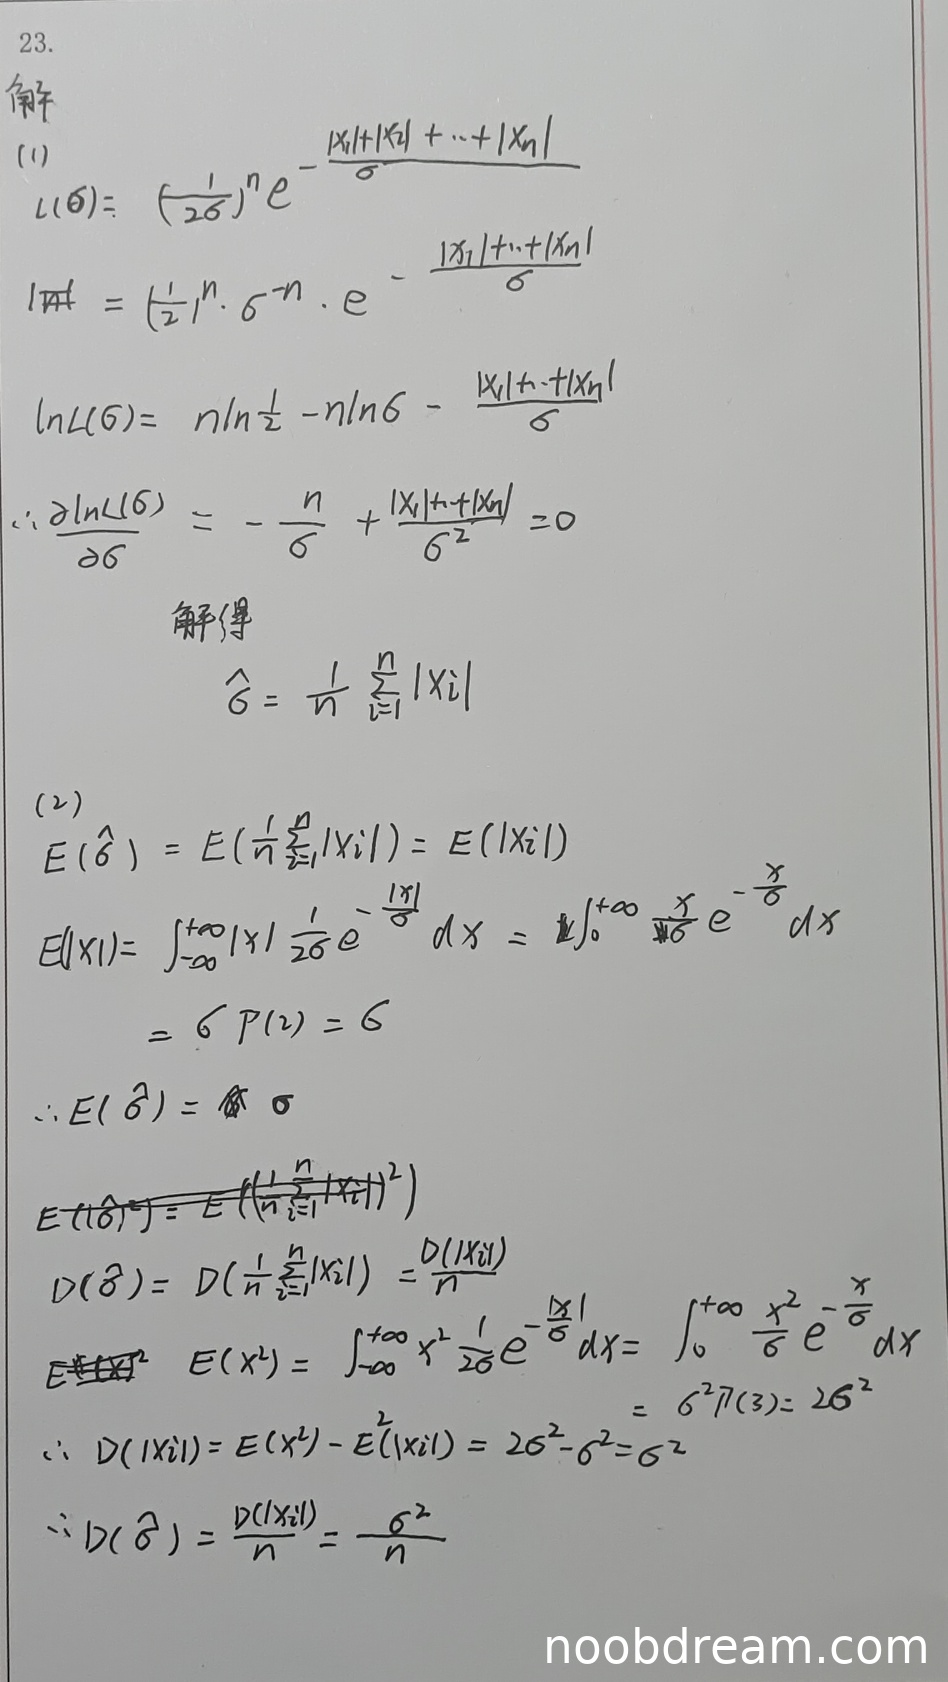 23.
解
(1)
L(σ)= (1/2σ)^n e^{-(|X₁|+|X₂|+…+|Xn|)/σ}
= (1/2)^n · σ^{-n} · e^{-(|X₁|+…+|Xn|)/σ}
lnL(σ)= nln1/2 - nlnσ - (|X₁|+…+|Xn|)/σ
∴ ∂lnL(σ)/∂σ = - n/σ + (|X₁|+…+|Xn|)/σ² = 0
解得
σ̂ = 1/n ∑_{i=1}^{n} |Xi|
(2)
E(σ̂) = E(1/n ∑_{i=1}^{n} |Xi|) = E(|Xi|)
E(|X|)= ∫_{-∞}^{+∞} |x| 1/2σ e^{-|x|/σ} dx = ∫_0^{+∞} x/σ e^{-x/σ} dx
= σ Γ(2) = σ
∴ E(σ̂) = σ
E((σ̂)²) = E((1/n ∑_{i=1}^{n} |Xi|)²)
D(σ̂) = D(1/n ∑_{i=1}^{n} |Xi|) = D(|Xi|)/n
E(X²) = ∫_{-∞}^{+∞} x² 1/2σ e^{-|x|/σ} dx = ∫_0^{+∞} x²/σ e^{-x/σ} dx
= σ²Γ(3) = 2σ²
∴ D(|Xi|) = E(X²) - E²(|Xi|) = 2σ² - σ² = σ²
∴ D(σ̂) = D(|Xi|)/n = σ²/n
noobdream.com